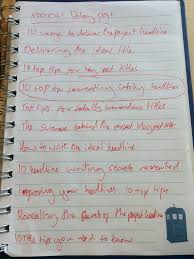 10 ways to deliver the perfect headline
Delivering the ideal title
10 top tips for blog post titles
10 top tips for creating catchy headlines
Top tips for totally tremendous titles
The science behind the perfect blog post title
How to write the ideal headline
10 headline writing secrets revealed
Improving your headlines: 10 top tips
Revealing the secrets of the perfect headline
tips you need to know